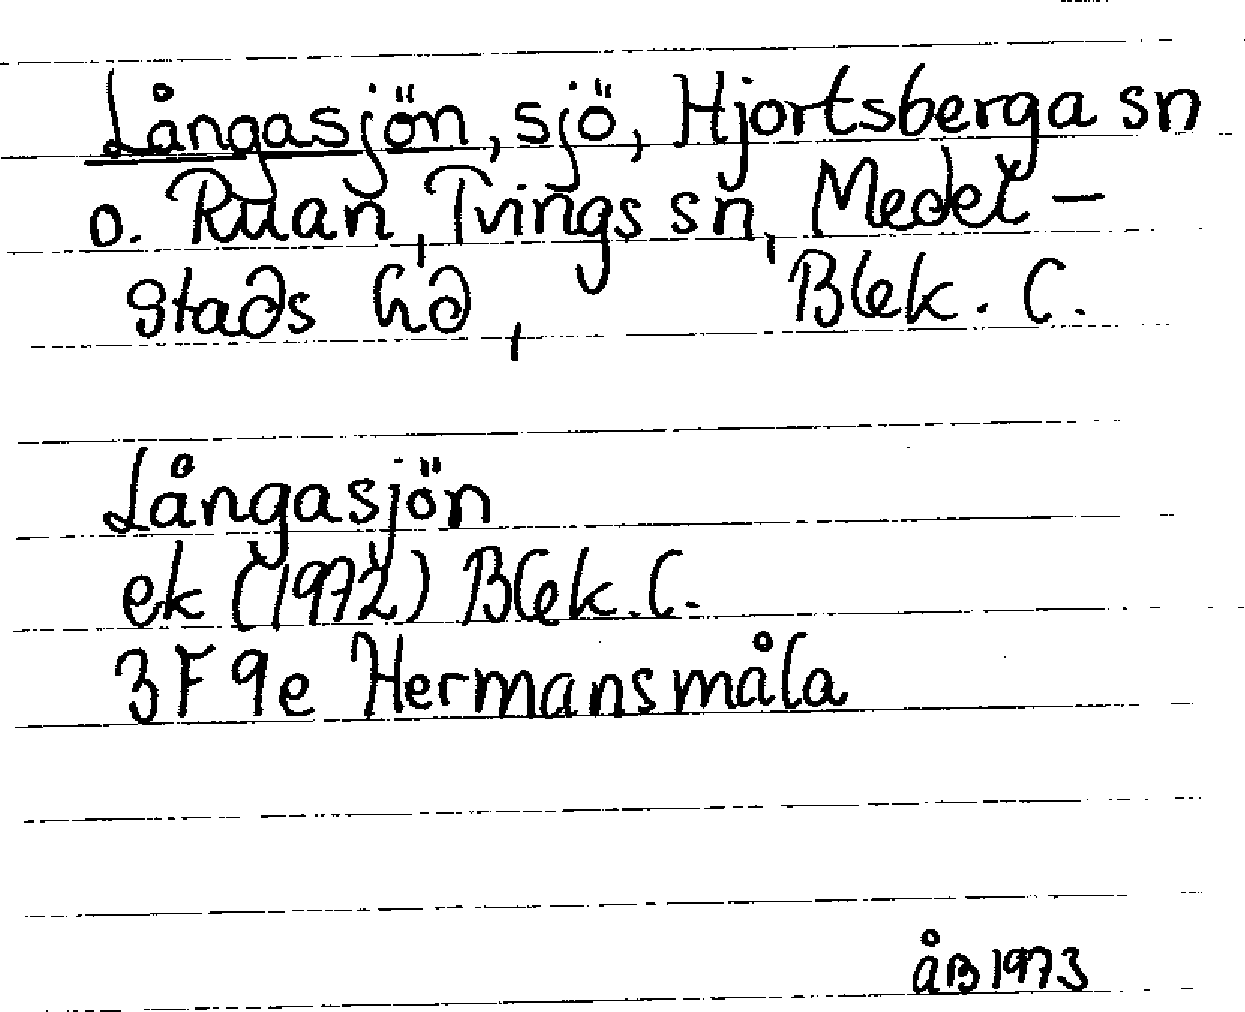 Långasjön, sjö, Hjortsberga sn
o. Ruan, Tvings sn, Medel-
stads hd, Blek. l.
Långasjön
ek (1972) Blek. l.
3F 9e Hermansmåla
åB 1973